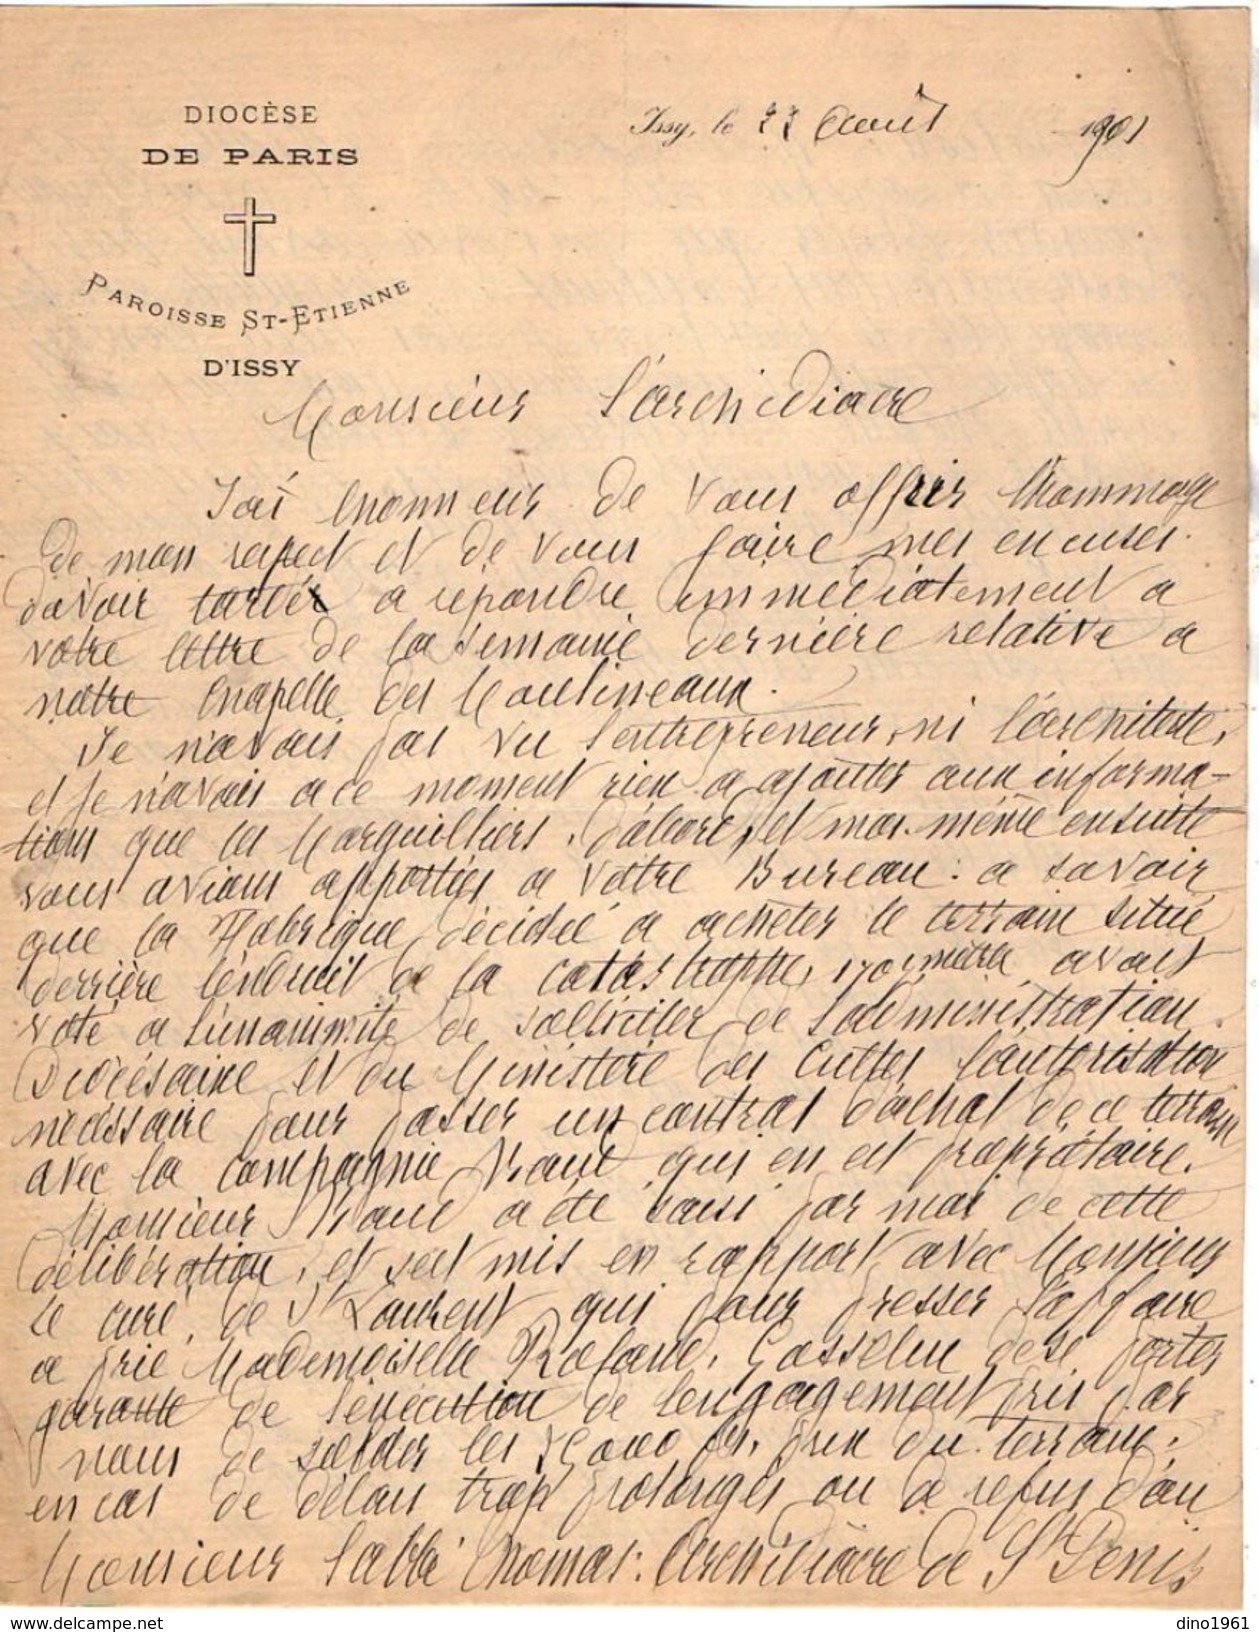 DIOCÈSE
DE PARIS
PAROISSE ST-ETIENNE
D'ISSY
Issy, le 22 Août 1901
Monsieur l'archidiacre
J'ai l'honneur de vous offrir l'hommage
de mon respect et de vous faire mes excuses
d'avoir tardé a repondre immédiatement a
votre lettre de la semaine dernière relative a
notre chapelle des Moulineaux.
Je n'avais pas vu l'entrepreneur, ni l'architecte,
et je n'avais a ce moment rien a ajouter aux informa-
tions que les Marguilliers, d'abord, et moi-même ensuite
vous avions apportées a votre Bureau : a savoir
que la Fabrique, décidée a acheter le terrain situé
derrière l'endroit de la catastrophe, mètres avait
voté a l'unanimité de solliciter de l'administration
Diocésaine et du Ministère des Cultes l'autorisation
nécessaire pour passer un contrat d'achat de ce terrain
avec la compagnie qui en est propriétaire.
Monsieur a été saisi par moi de cette
délibération, et s'est mis en rapport avec Monsieur
le curé de St Laurent qui pour presser l'affaire
a prié Mademoiselle Gosselin de se porter
garante de l'exécution de l'engagement pris par
nous de solder les frs, prix du terrain,
en cas de délais trop prolongés ou de refus d'au
Monsieur l'abbé Thomas : Archidiacre de St Denis
dino1961